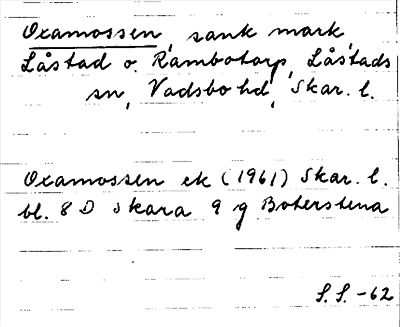 Oxamossen, sank mark,
Låstad o. Rambotorp, Låstads
sn, Vadsbo hd, Skar. l.
Oxamossen ek (1961) Skar. l.
bl. 8 D Skara 9 g Boterstena
S. S. -62